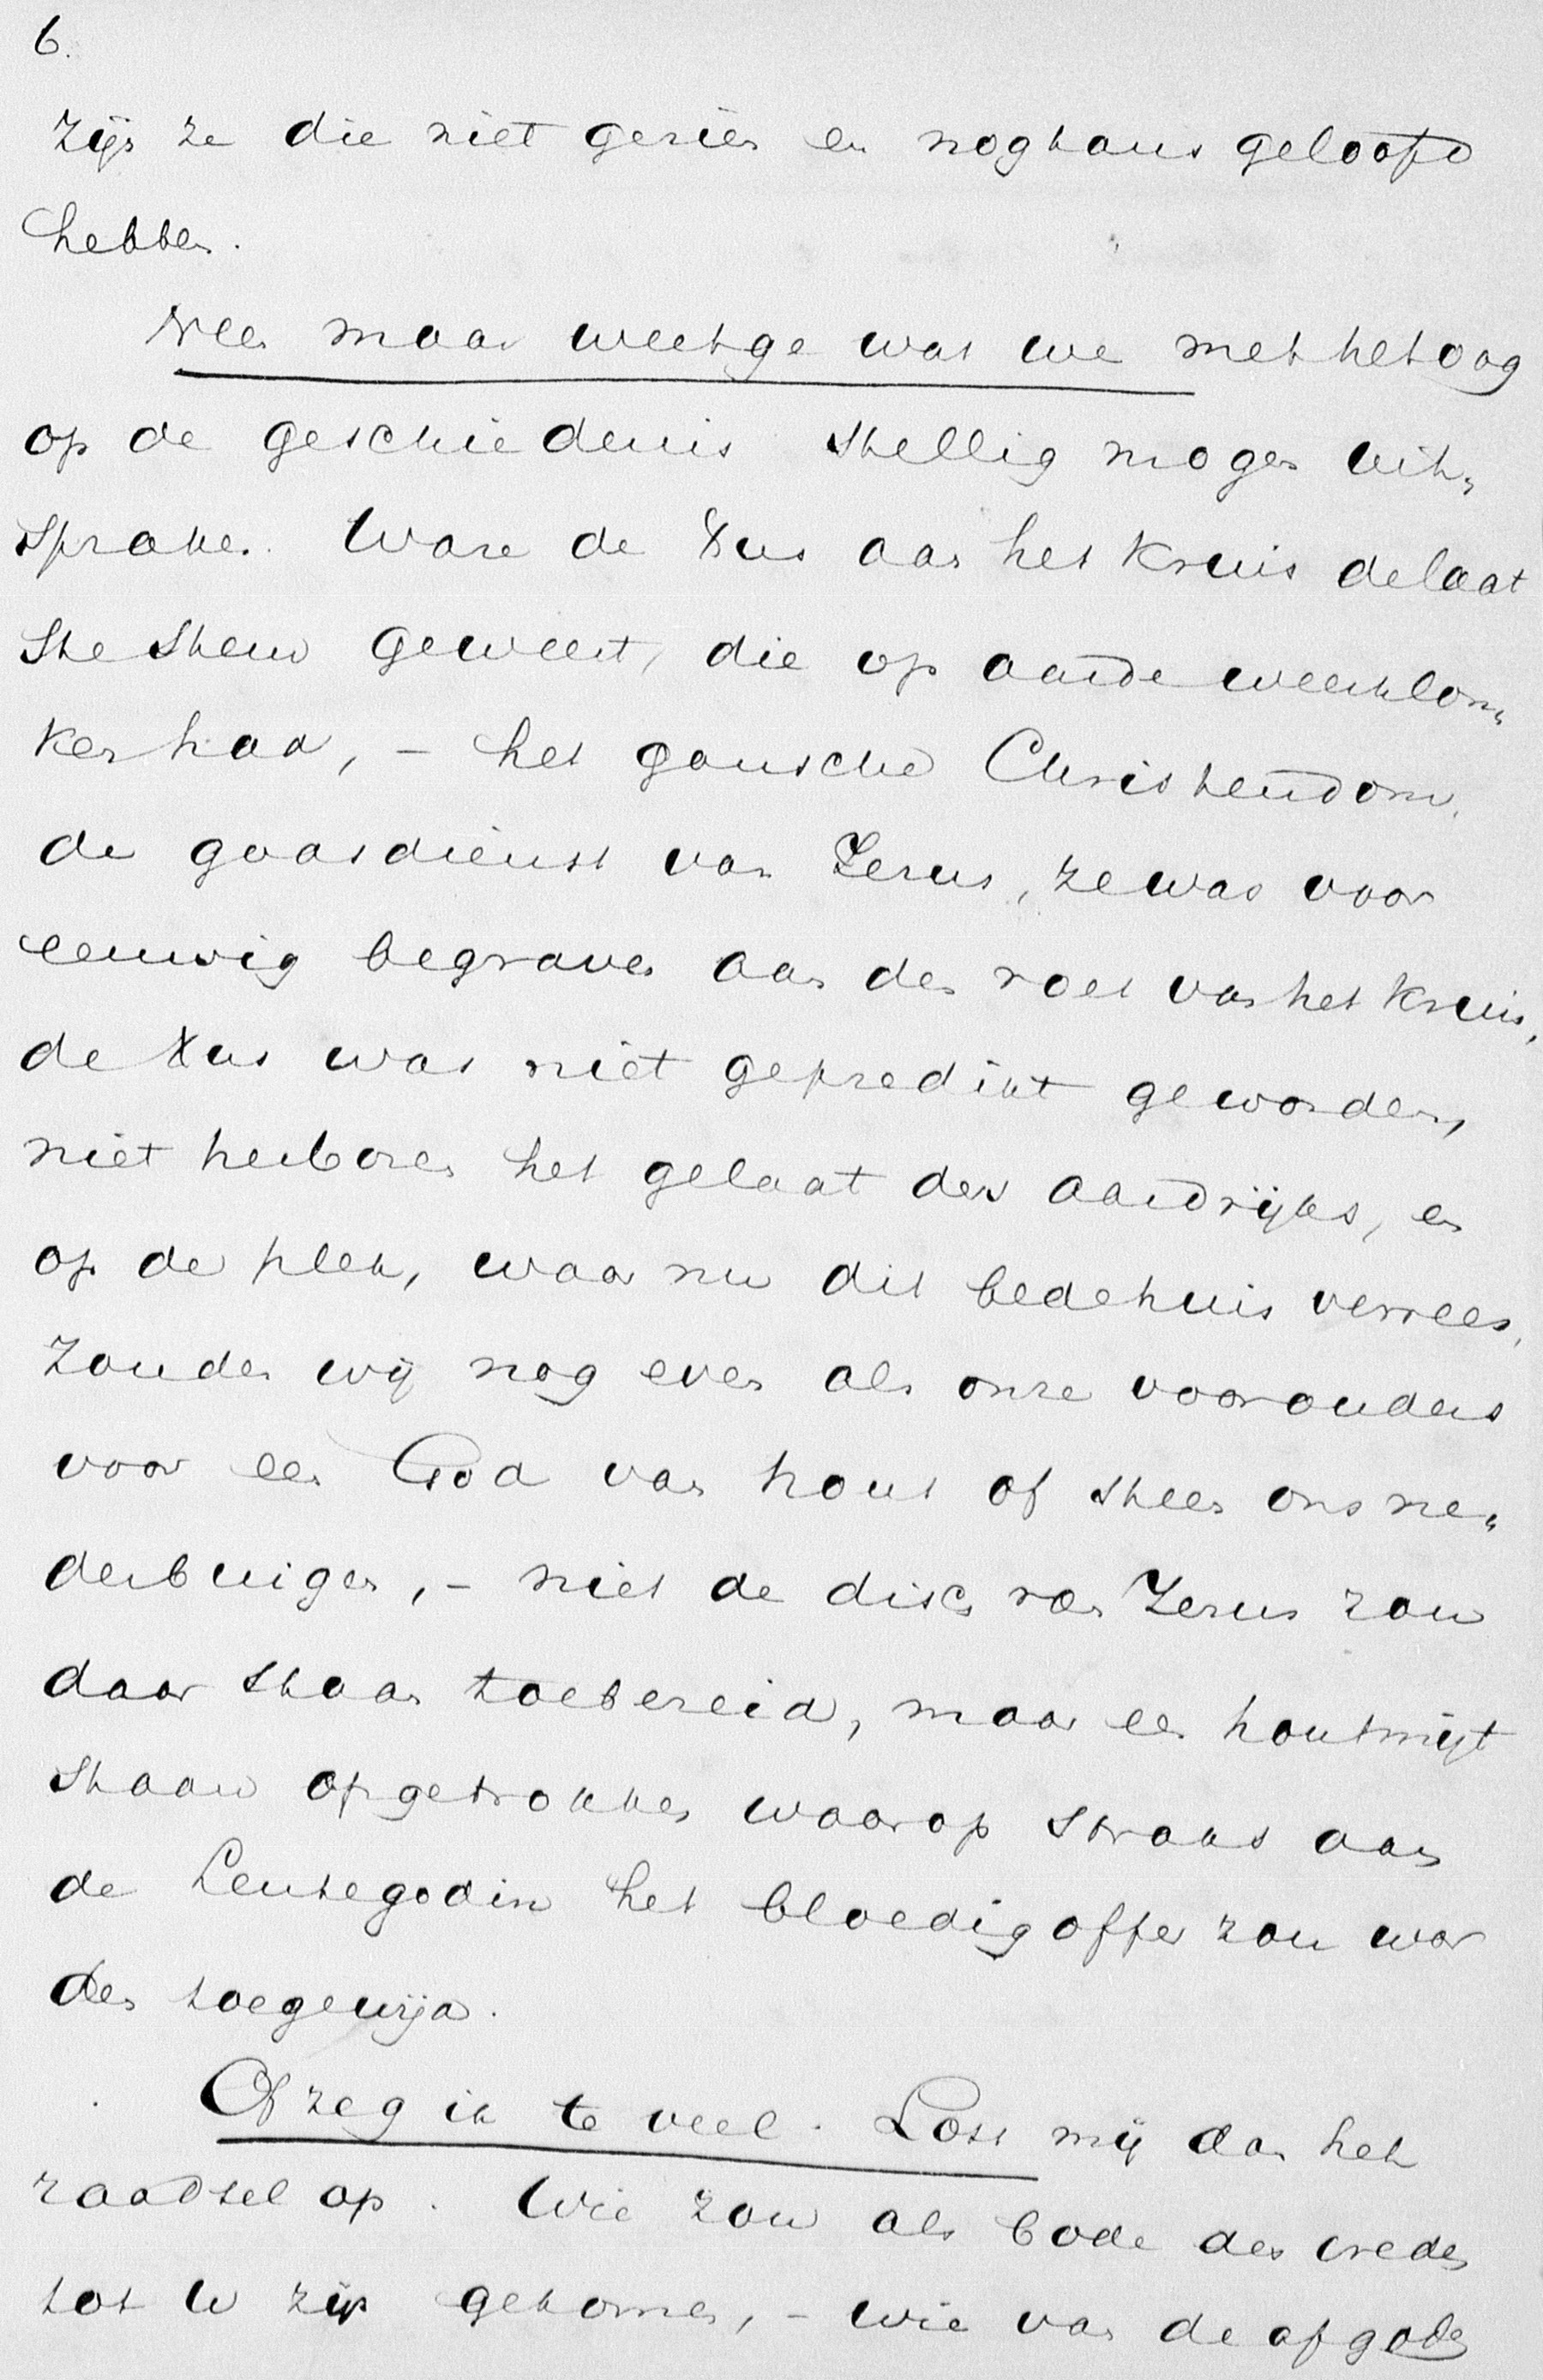 6.
zijn ze die niet gezien en nogtans geloofd
hebben.
Neen maar weet ge wat we met het oog
op de geschiedenis stellig mogen uit„
spraken. Ware de Xus aan het kruis de laat
ste stem geweest, die op aarde weerklon„
ken had, – het gansche Christendom,
de godsdienst van Jezus, ze was voor
eeuwig begraven aan den voet van het kruis,
de Xus was niet gepredikt geworden,
niet herboren het gelaat des aardrijks, en
op de plek, waar nu dit bedehuis verrees,
zouden wij nog even als onze voorouders
voor een God van hout of steen ons ne„
derbuigen, – niet de disch van Jezus zou
daar staan toebereid, maar een houtmijt
staan opgetrokken waarop straks aan
de Lentegodin het bloedig offer zou wor
den toegewijd.
Of zeg ik te veel. Los mij dan het
raadsel op. Wie zou als bode des vredes
tot U zijn gekomen, – wie van de afgoden